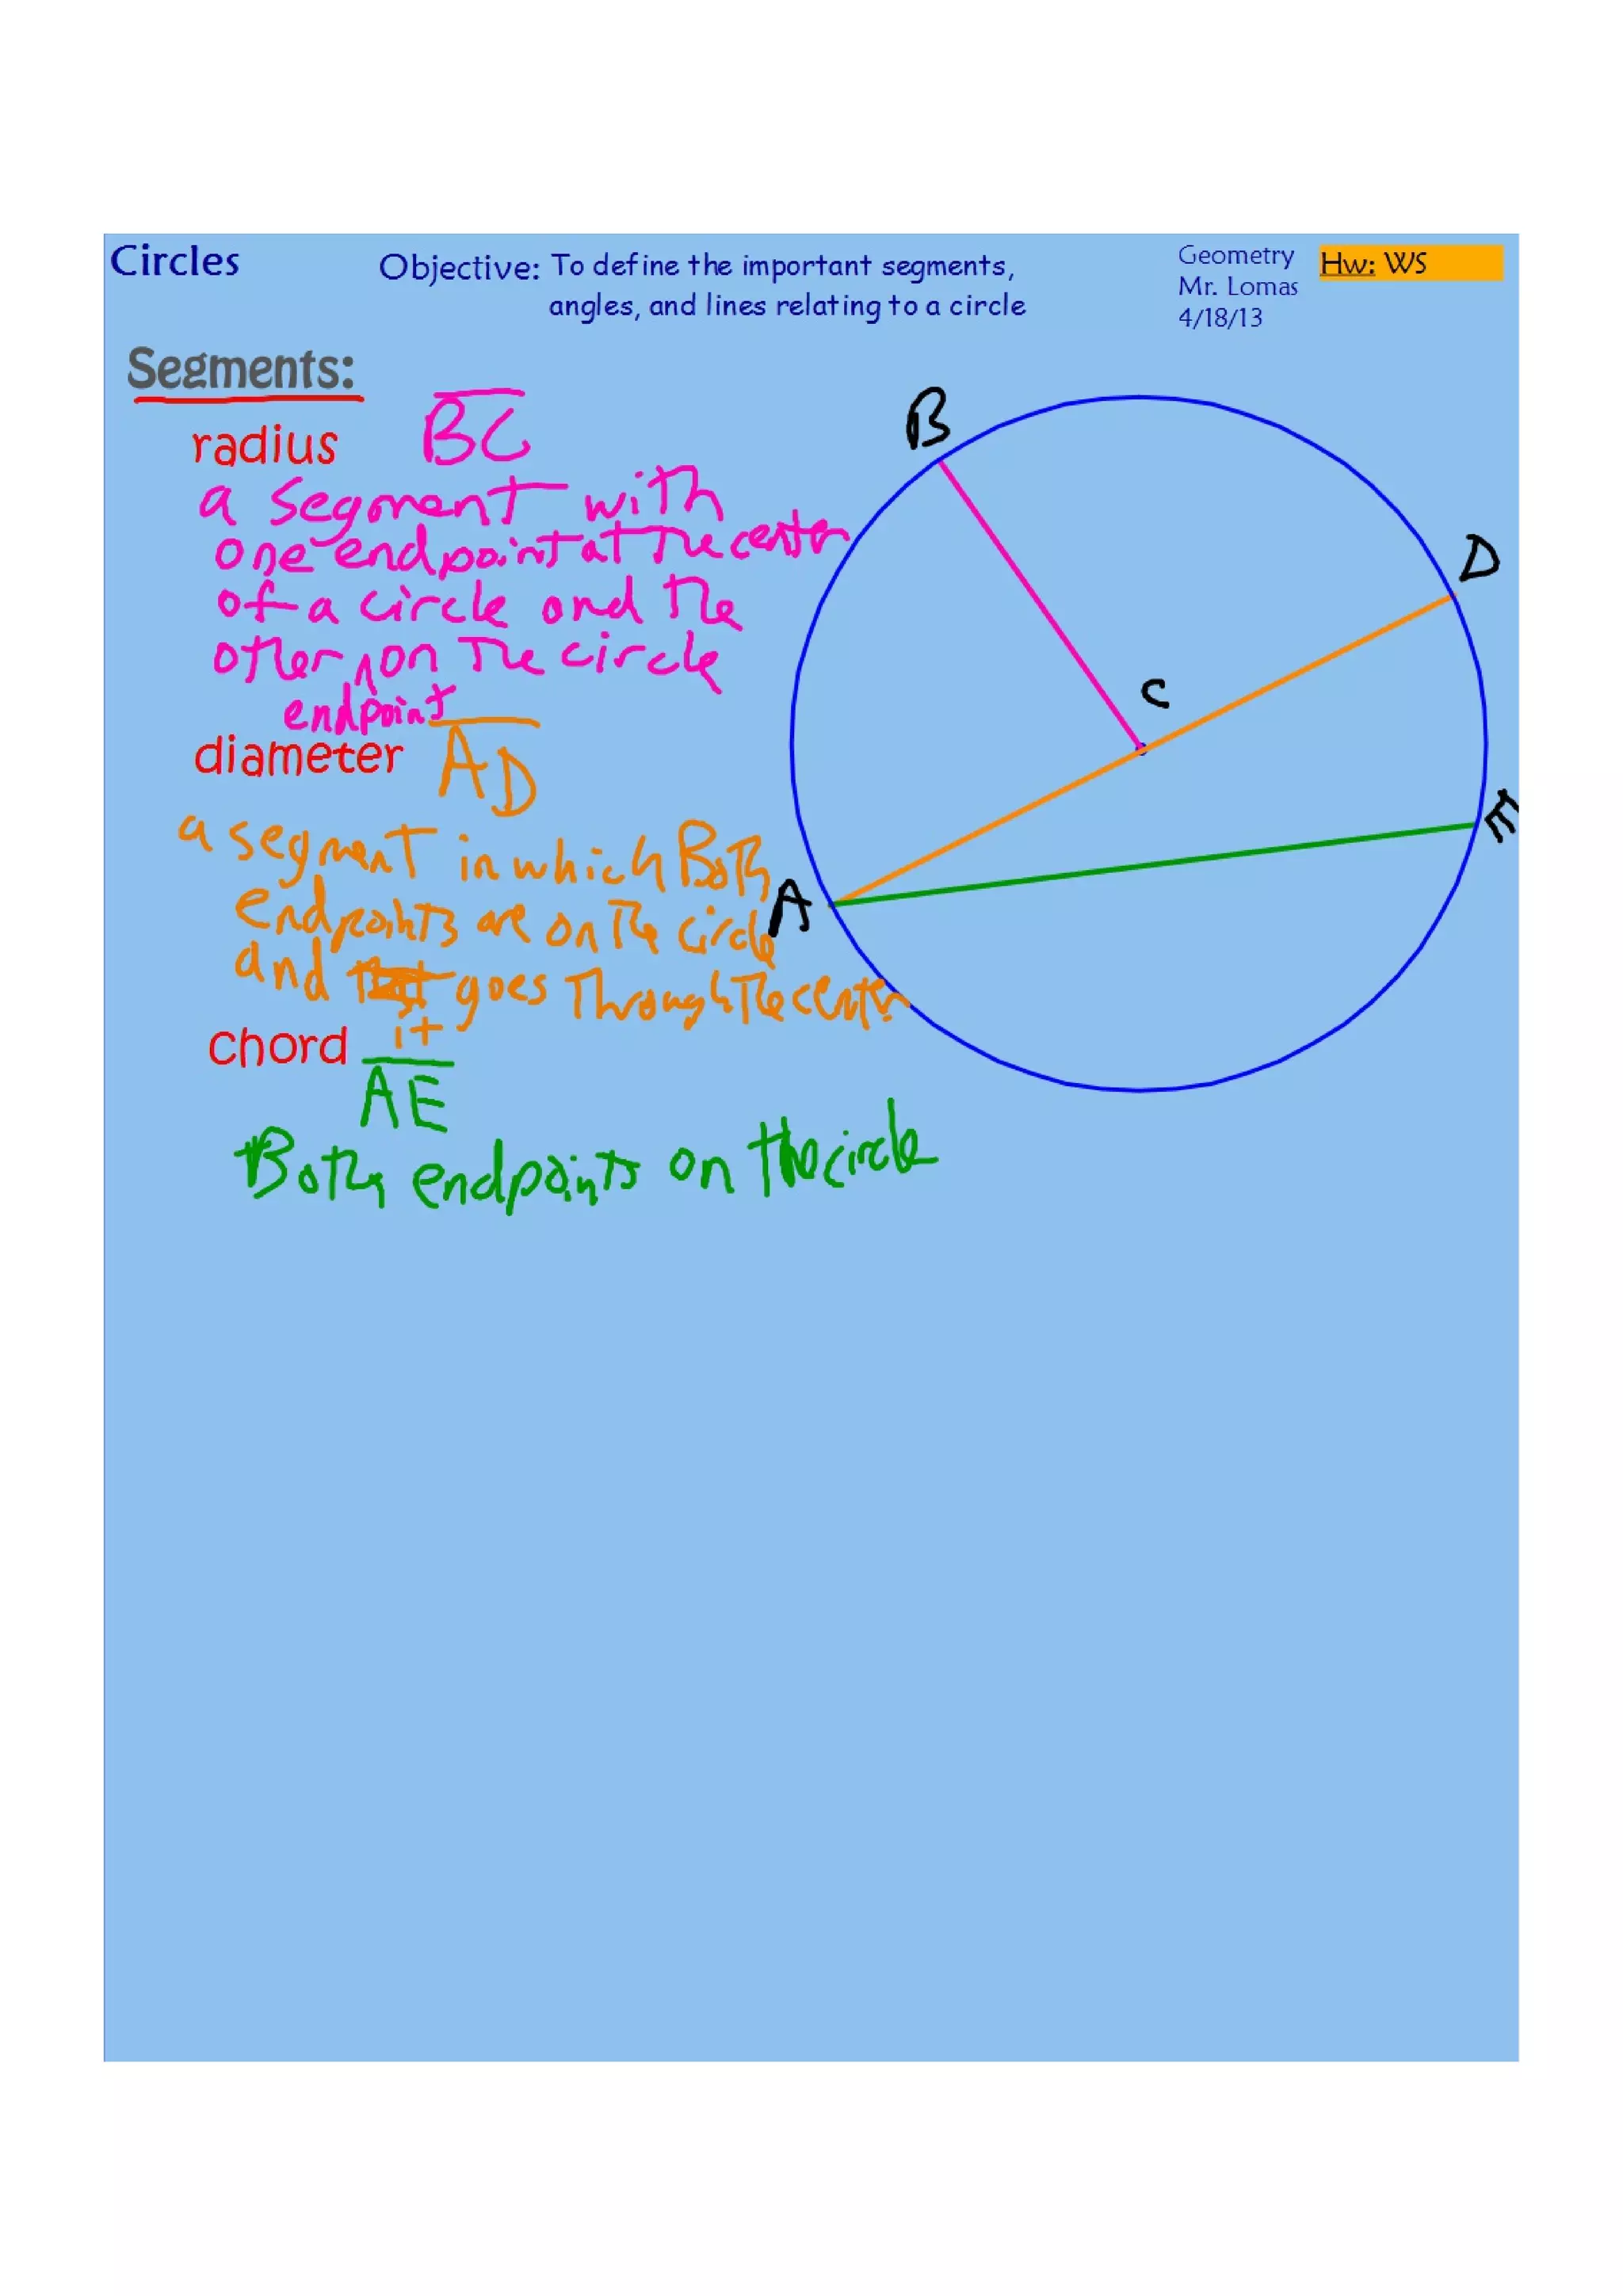 Circles
Objective: To define the important segments,
angles, and lines relating to a circle
Geometry
Mr. Lomas
4/18/13
Hw: WS
Segments:
radius BC
a segment with
one endpoint at the center
of a circle and the
other on the circle
endpoint
diameter AD
a segment in which Both
endpoints are on the circle
and goes through the center
it
chord
AE
Both endpoints on the circle
B
D
C
E
A